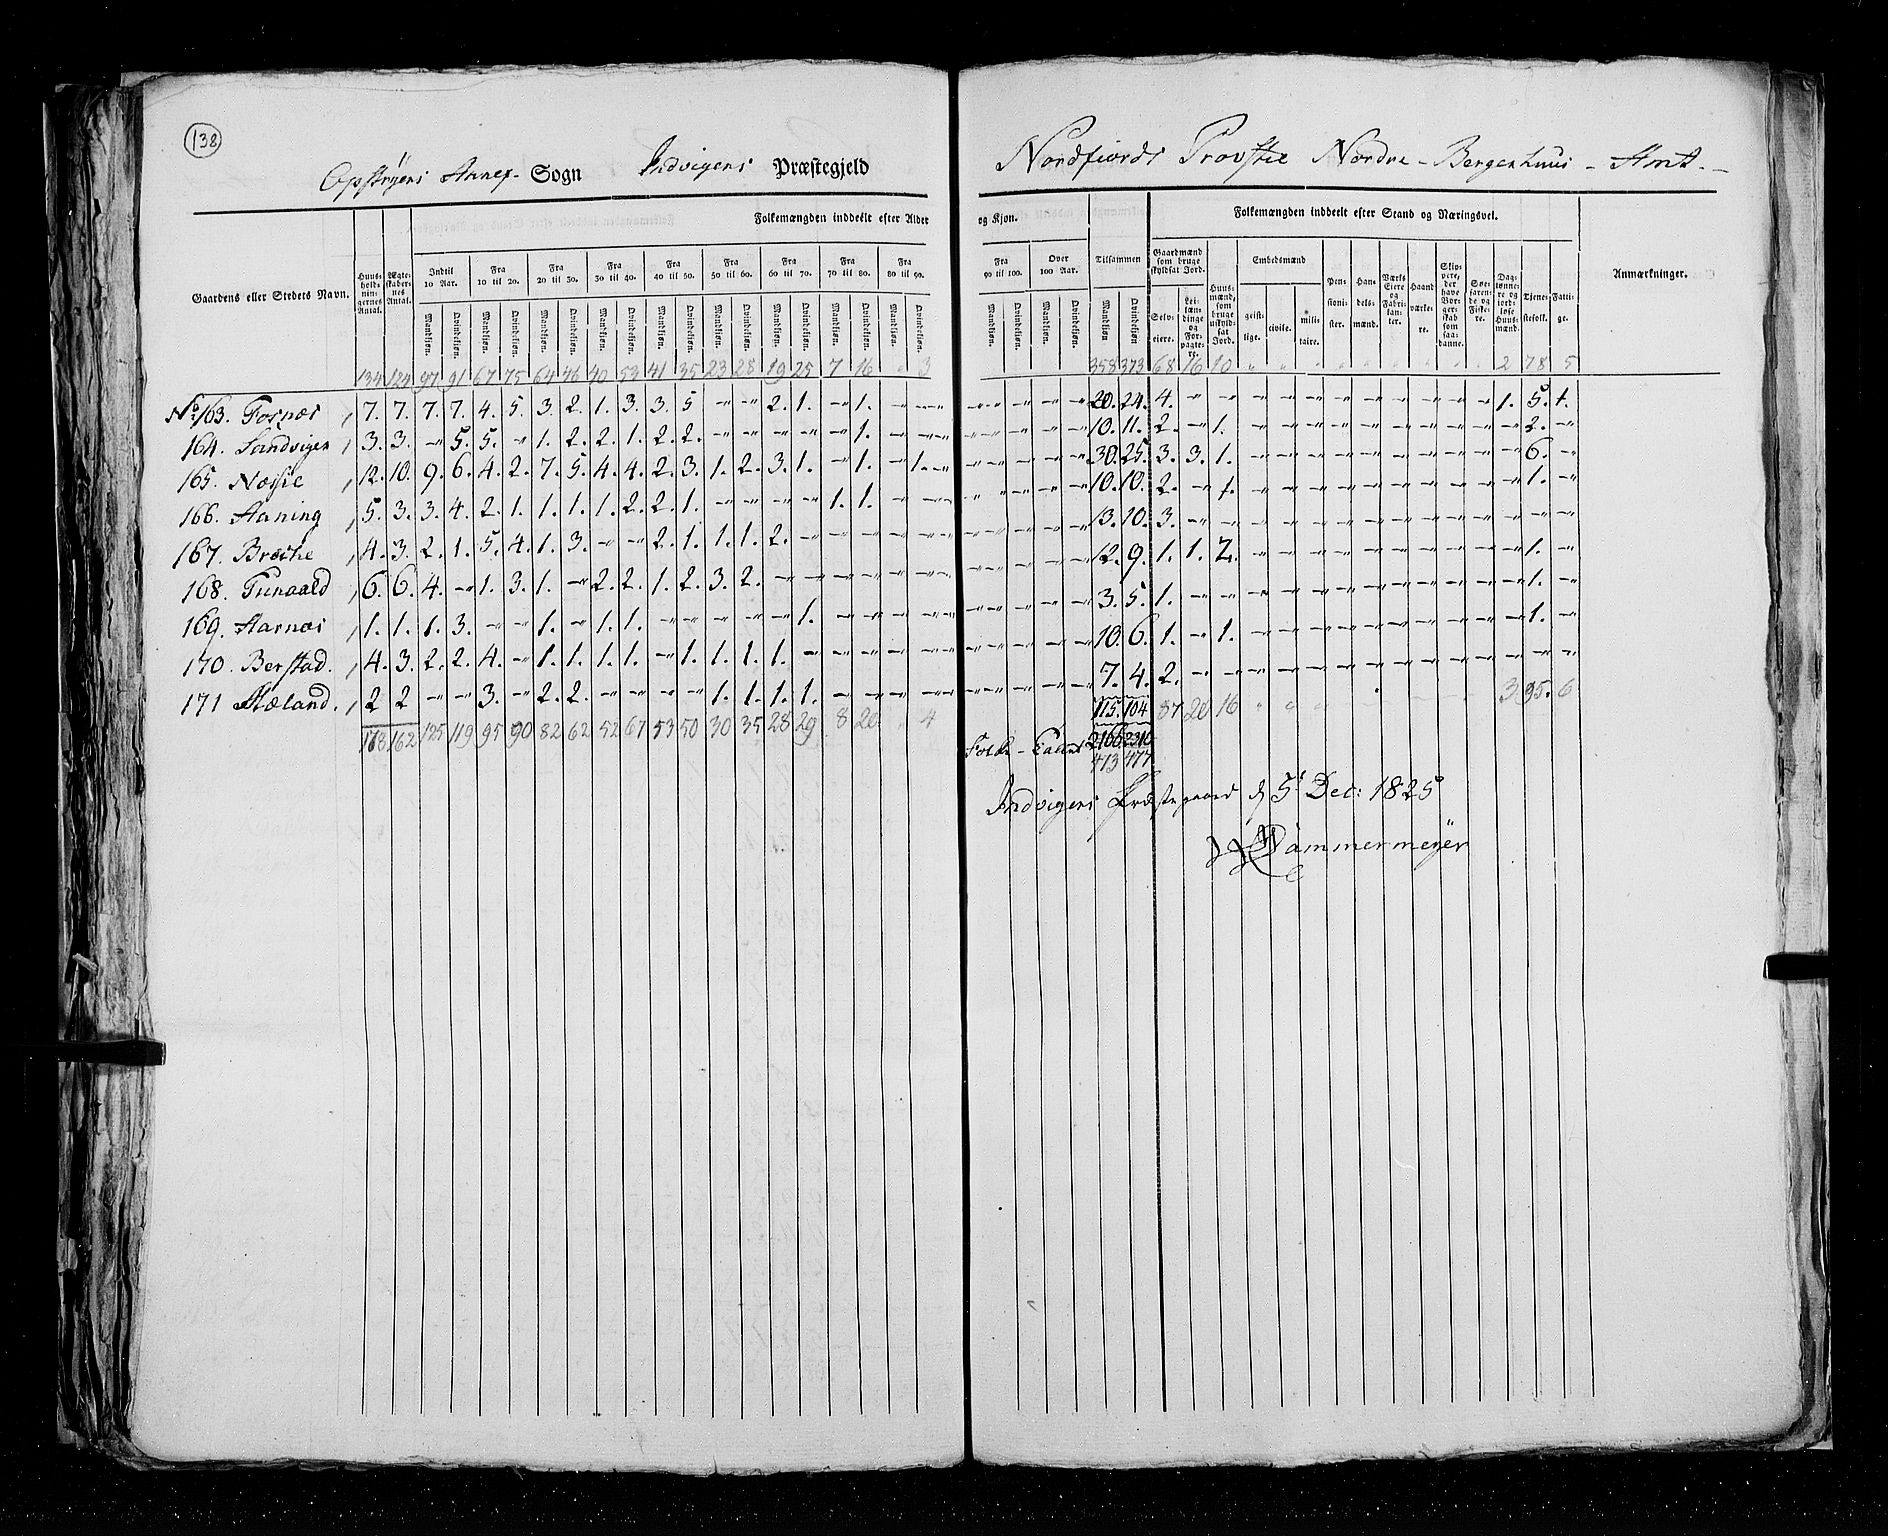 138
Opstryens Annex- Sogn Indvigens Præstegjeld Nordfiords Provstie Nordre-Bergenhuus-Amt.
Folkemængden inddeelt efter Alder og Kjøn. Folkemængden inddeelt efter Stand og Næringsvei.
Gaardens eller Stedets Navn. Huusholdningernes Antal. Ægteskabernes Antal. Indtil 10 Aar. Fra 10 til 20. Fra 20 til 30. Fra 30 til 40. Fra 40 til 50. Fra 50 til 60. Fra 60 til 70. Fra 70 til 80. Fra 80 til 90. Fra 90 til 100. Over 100 Aar. Tilsammen Gaardmænd som bruge skyldsat Jord. Huusmænd, som bruge uskyldsat Jord. Embedsmænd Pensionister. Handelsmænd. Værks Eiere og Fabrikanter. Haandværkere. Skippere, der have Borgerskab som saadanne. Søefarende og Fiskere. Daglønnere og jordløse Huusmænd. Tjenestefolk. Fattige. Anmærkninger.
Mandkjøn. Qvindekjøn. Mandkjøn. Qvindekjøn. Mandkjøn. Qvindekjøn. Mandkjøn. Qvindekjøn. Mandkjøn. Qvindekjøn. Mandkjøn. Qvindekjøn. Mandkjøn. Qvindekjøn. Mandkjøn. Qvindekjøn. Mandkjøn. Qvindekjøn. Mandkjøn. Qvindekjøn. Mandkjøn. Qvindekjøn. Mandkjøn Qvindekjøn. Selveiere. Leilændinge og Forpagtere. geistlige. civile. militaire.
134 124 97 91 67 75 64 46 40 53 41 35 23 28 19 25 7 16 " 3 358 373 68 16 10 " " " " " " " " " 2 78 5
No 163. Fosnæs, 7. 7. 7. 7. 4. 5. 3. 2. 1. 3. 3. 5 - - 2. 1. - 1. - - - - - - 20. 24. 4. - - - - - - - - - - - 1. 5. 1.
164. Sandvigen, 3. 3. - 5. 5. - 1. 2. 2. 1. 2. 2. - - - - - 1. - - - - - - 10. 11. 2. - 1. - - - - - - - - - - 2. -
165. Næsie, 12. 10. 9. 6. 4. 2. 7. 5. 4. 4. 2. 3. 1. 2. 3. 1. - 1. - 1. - - - - 30. 25. 3. 3. 1. - - - - - - - - - - 6. -
166. Haning, 5. 3. 3. 4. 2. 1. 1. 1. 1. 2. 2. 1. - - - - 1. 1. - - - - - - 10. 10. 2. - 1. - - - - - - - - - - 1. -
167. Bræche, 4. 3. 2. 1. 5. 4. 1. 3. - - 2. 1. 1. 1. 2. - - - - - - - - - 13. 10. 3. - - - - - - - - - - - - - -
168. Tunaald, 6. 6. 4. - 1. 3. 1. - 2. 2. 1. 2. 3. 2. - - - - - - - - - - 12. 9. 1. 1. 2. - - - - - - - - - - 1. -
169. Aarnæs, 1. 1. 1. 3. - - 1. - 1. 1. - - - - - 1. - - - - - - - - 3. 5. 1. - - - - - - - - - - - - 1. -
170. Berstad, 4. 3. 2. 2. 4. - 1. 1. 1. 1. - 1. 1. 1. 1. - - - - - - - - - 10. 6. 1. - 1. - - - - - - - - - - 1. -
171 Hæland, 2 2 - - 3. - 2. 2. - - - - 1. 1. 1. 1. - - - - - - - - 7. 4. 2. - - - - - - - - - - - - - -
178 162 125 119 95 90 82 62 52 67 53 50 30 35 28 29 8 20 " 4 115. 104 87 20 16 3 95. 6
Folke-Tallet 2166 2310
473 477
Indvigens Præstegaard d 5t Dec: 1825
Dammermeyer